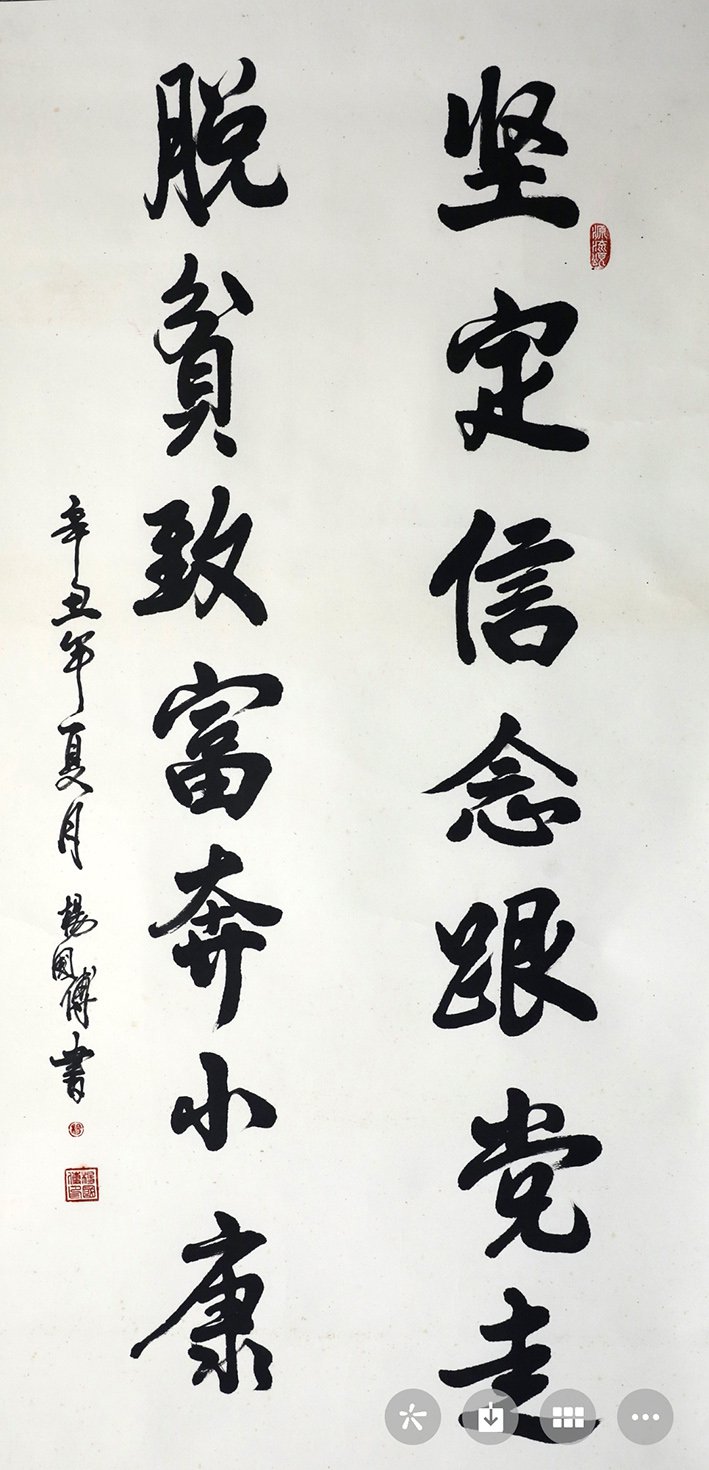 坚定信念跟党走
脱贫致富奔小康
辛丑年夏月 楊國傅書